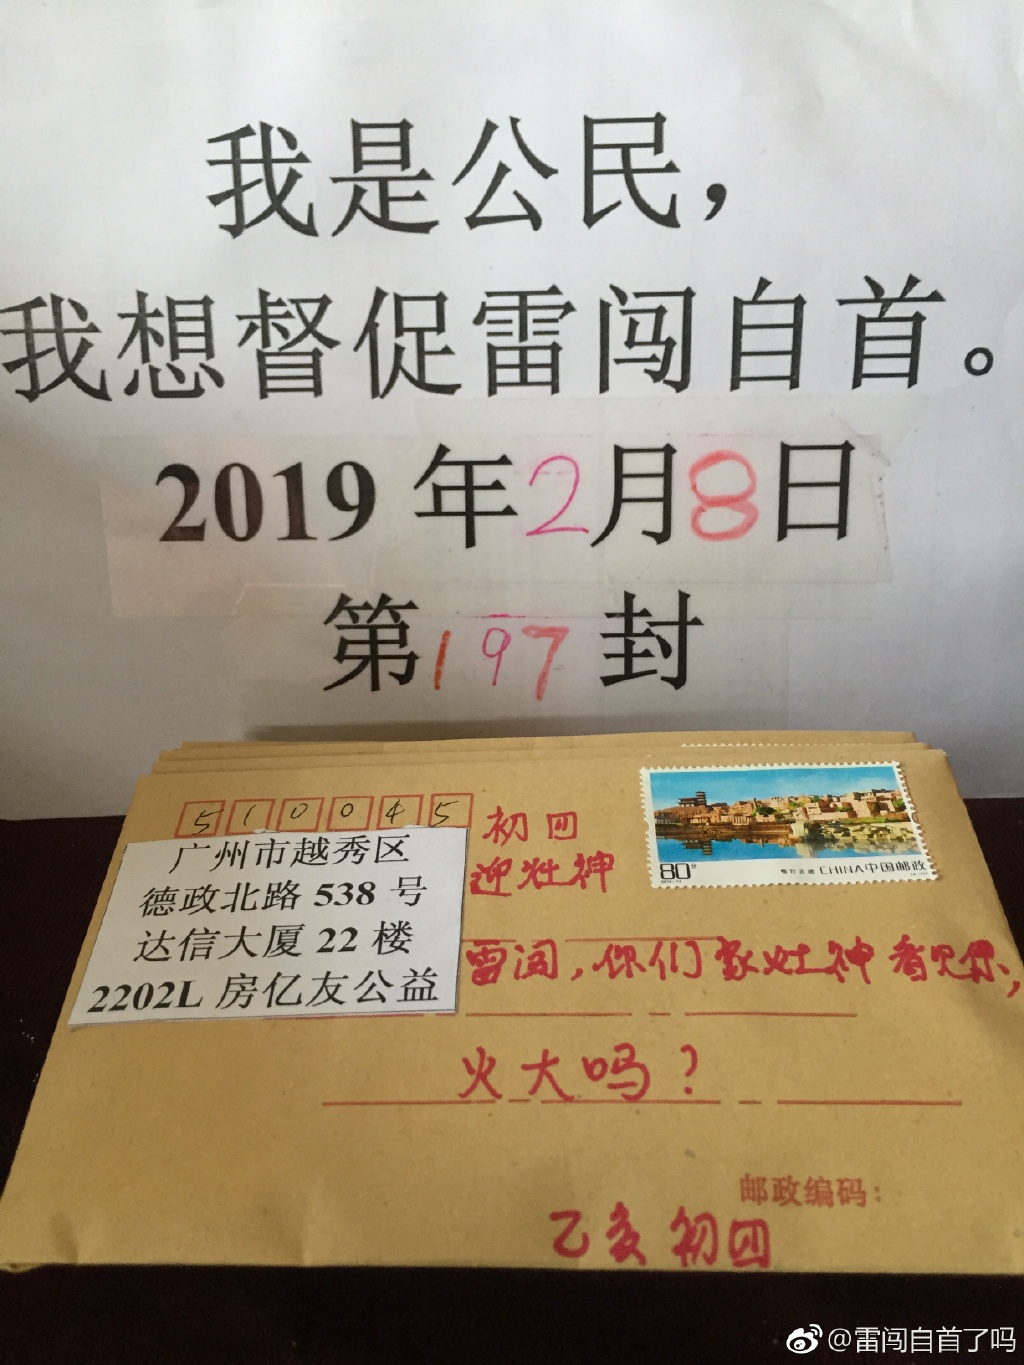 我是公民，
我想督促雷闯自首。
2019年2月8日
第197封
510045
广州市越秀区
德政北路 538 号
达信大厦 22 楼
2202L 房亿友公益
初四
迎灶神
80分
CHINA中国邮政
雷闯，你们家灶神看见你，
火大吗？
邮政编码：
乙亥 初四
@雷闯自首了吗